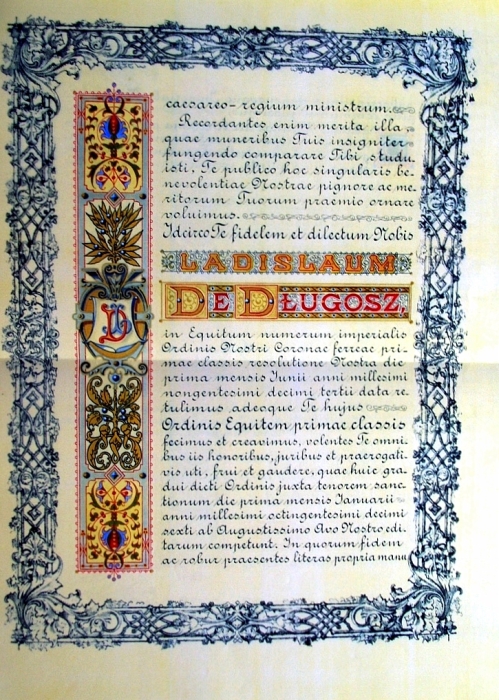 caesareo-regium ministrum.
Recordantes enim merita illa,
quae muneribus Tuis insigniter
fungendo comparare Tibi studu-
isti, Te publico hoc singularis be-
nevolentiae Nostrae pignore ac me-
ritorum Tuorum praemio ornare
voluimus.
Idcirco Te fidelem et dilectum Nobis
LADISLAUM
DE DŁUGOSZ,
in Equitum numerum imperialis
Ordinis Nostri Coronae ferreae pri-
mae classis resolutione Nostra die
prima mensis Iunii anni millesimi
nongentesimi decimi tertii data re-
tulimus adeoque Te hujus
Ordinis Equitem primae classis
fecimus et creavimus, volentes Te omni-
bus iis honoribus, juribus et praerogati-
vis uti, frui et gaudere, quae huic gra-
dui dicti Ordinis juxta tenorem sanc-
tionum die prima mensis Ianuarii
anni millesimi octingentesimi decimi
sexti ab Augustissimo Avo Nostro edi-
tarum competunt. In quorum fidem
ac robur praesentes literas propria manu